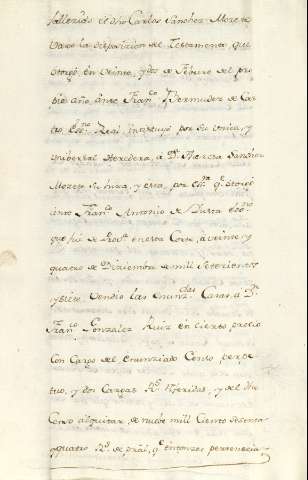 fallecido el dho Carlos Sanchez Moreto
vaxo la disposicion del Testamento, que
otorgó, en veinte, y dos de Febrero del pro
pio año, ante Franco Vermudez de Cas
tro, Essno Real, instituyó por su Unica, y
Universal heredera, a Da Theresa Sanchez
Moreto su hixa, y esta, por essra qe otorgó
ante Franco Antonio de Essno
que fué de Provª en esta Corte, à veinte, y
quatro de Diziembre de mil setecientos
y siete, vendió las enunzdas Casas, a Dn
Franco Gonzalez Ruiz en cierto precio
con Cargo del enunziado Censo perpe
tuo, y dos Cargas Rs referidas, y del dho
Censo alquitar, de nueve mil Ciento sesenta
y quatro Rs de pral, qe entonzes pertenecia